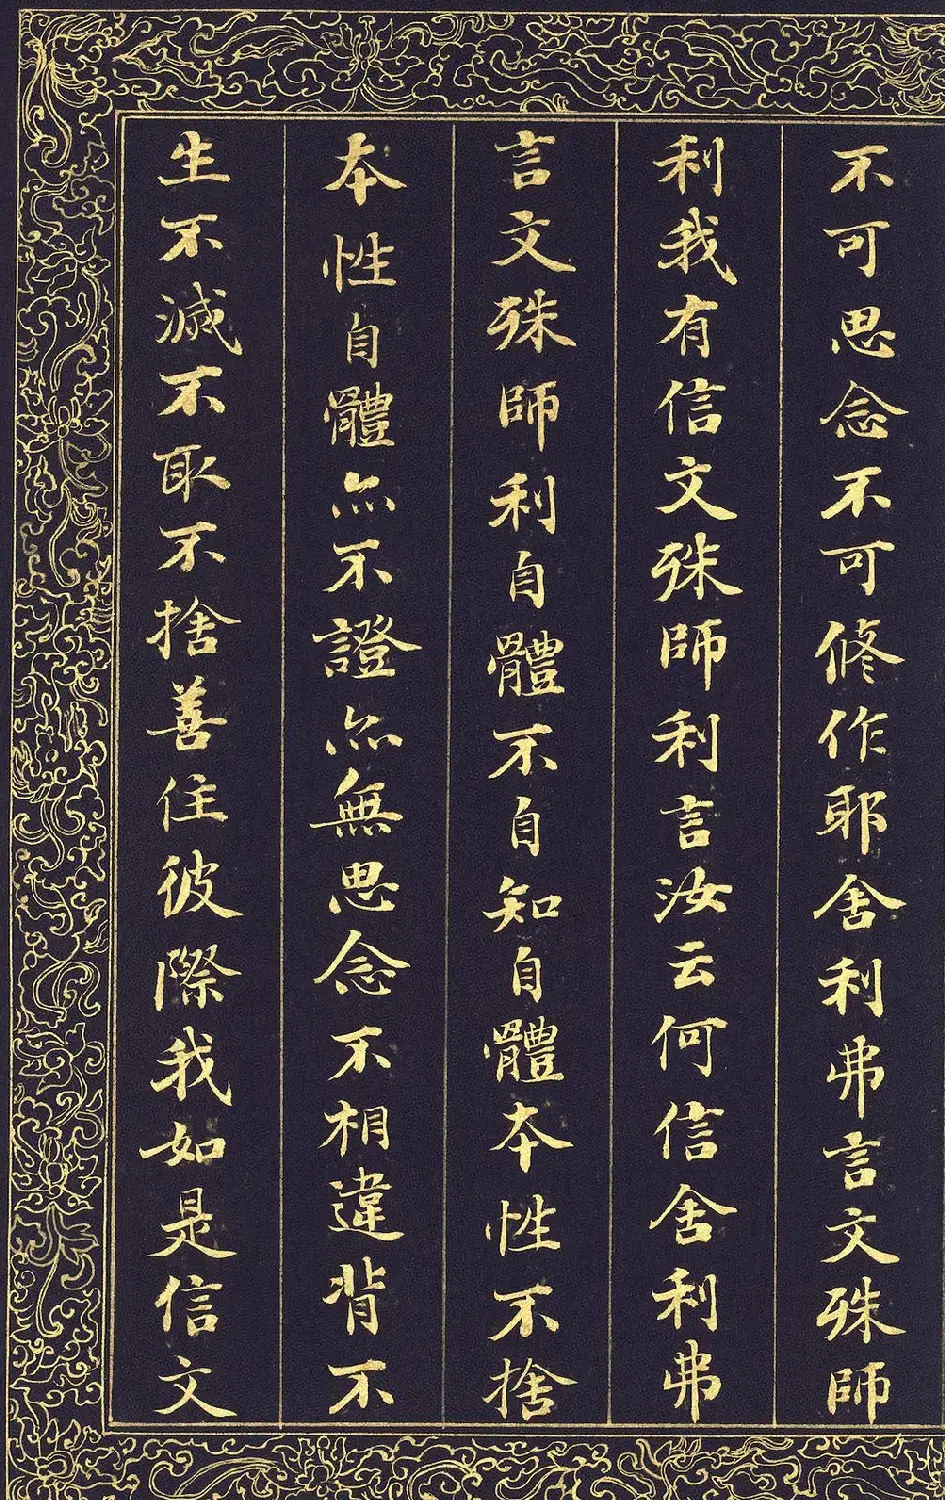 不可思念不可修作耶舍利弗言文殊師
利我有信文殊師利言汝云何信舍利弗
言文殊師利自體不自知自體本性不捨
本性自體亦不證亦無思念不相違背不
生不滅不取不捨善住彼際我如是信文